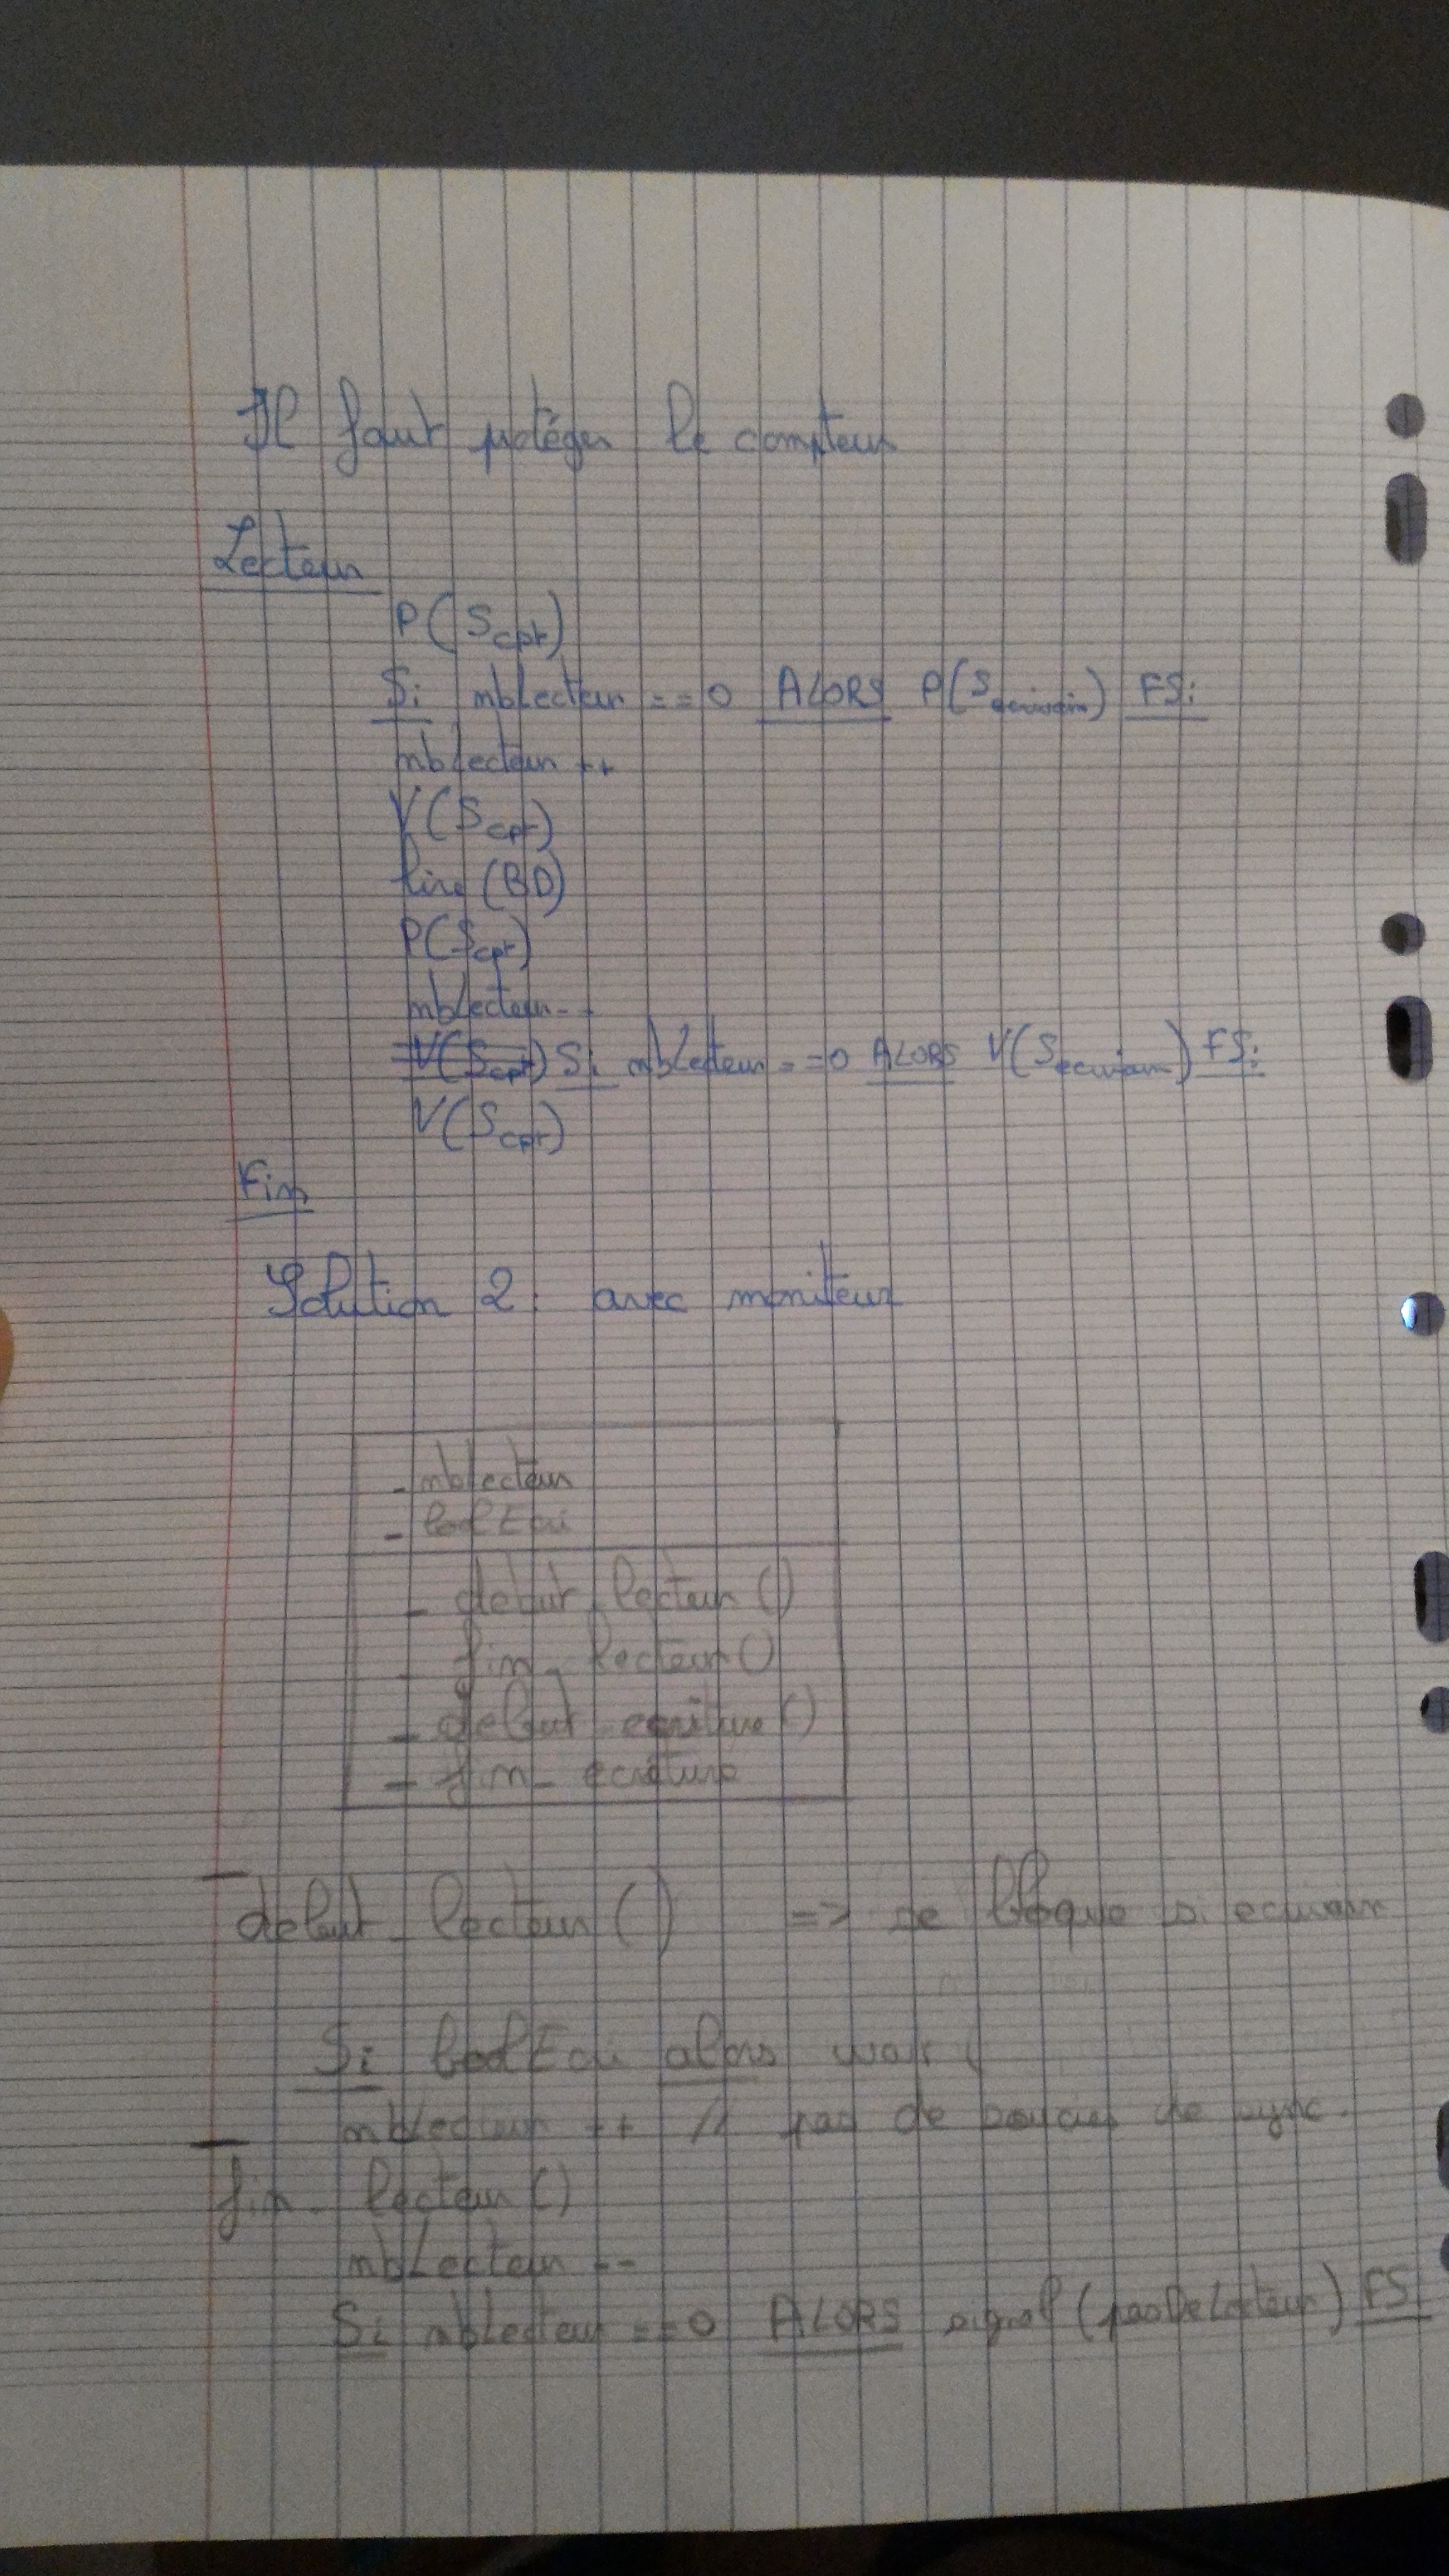 Il faut protéger le compteur
Lecteur
P(Scpt)
Si nblecteur == 0 ALORS P(Secrivain) FSi
nblecteur ++
V(Scpt)
lire(BD)
P(Scpt)
nblecteur--
V(Scpt) Si nblecteur == 0 ALORS V(Secrivain) FSi
V(Scpt)
Fin
Solution 2 : avec moniteur
- nblecteur
- boolEcri
- debut_lecteur()
- fin_lecteur()
- debut_ecriture()
- fin_ecriture
debut_lecteur() => se bloque si ecrivain
Si boolEcri alors wait (
nblecteur ++ // pas de soucis de sync.
fin_lecteur()
nbLecteur --
Si nblecteur == 0 ALORS signal(pasDeLecteur) FSi